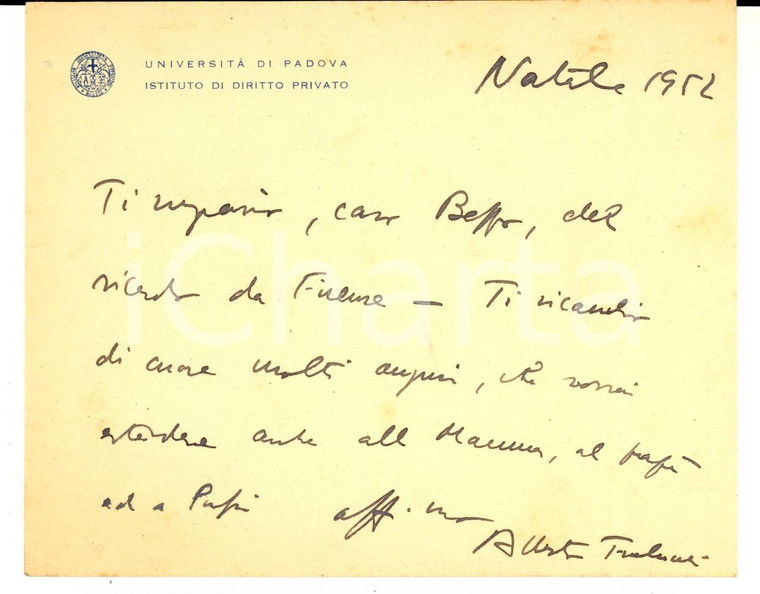 UNIVERSITÀ DI PADOVA
ISTITUTO DI DIRITTO PRIVATO
Natale 1952
Ti ringrazio, caro Beppe, del
ricordo da Firenze – Ti ricambio
di cuore molti auguri, che vorrei
estendere anche alla Mamma, al papà
ed a
aff.mo
Alberto Trabucchi
iCharta